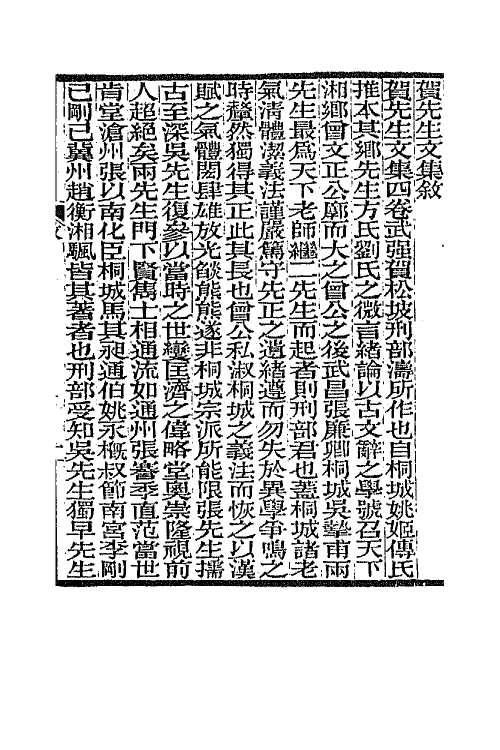 賀先生文集敘
賀先生文集四卷武强賀松坡刑部濤所作也自桐城姚姬傳氏
推本其鄉先生方氏劉氏之微言緒論以古文辭之學號召天下
湘鄉曾文正公廓而大之曾公之後武昌張廉卿桐城吳摯甫兩
先生最爲天下老師繼二先生而起者則刑部君也蓋桐城諸老
氣清體潔義法謹嚴篤守先正之遺緒遵而勿失於異學爭鳴之
時釐然獨得其正此其長也曾公私淑桐城之義法而恢之以漢
賦之氣體閎肆雄放光燄熊熊遂非桐城宗派所能限張先生擩
古至深吳先生復參以當時之世變匡濟之偉略堂奧崇隆視前
人超絕矣兩先生門下賢儁士相通流如通州張謇季直范當世
肯堂滄州張以南化臣桐城馬其昶通伯姚永概叔節南宮李剛
己剛己冀州趙衡湘颿皆其著者也刑部受知吳先生獨早先生